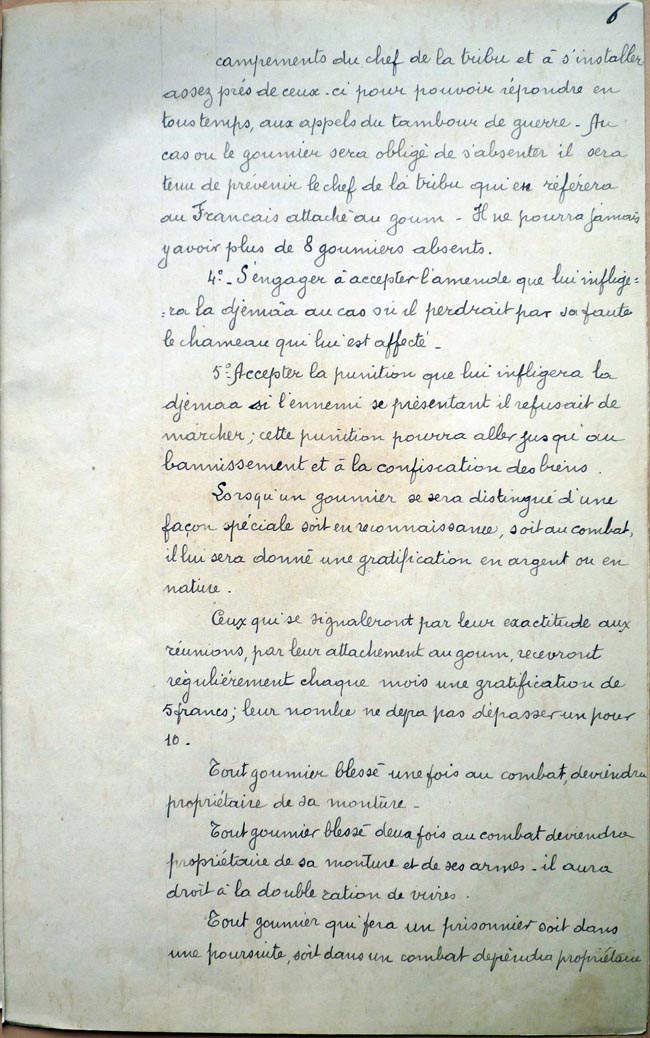 6
campements du chef de la tribu et à s'installer
assez près de ceux-ci pour pouvoir répondre en
tous temps, aux appels du tambour de guerre - Au
cas ou le goumier sera obligé de s'absenter il sera
tenu de prévenir le chef de la tribu qui en référera
au Francais attaché au goum - Il ne pourra jamais
y avoir plus de 8 goumiers absents.
4° - S'engager à accepter l'amende que lui inflige=
=ra la djemâa au cas où il perdrait par sa faute
le chameau qui lui est affecté -
5° - Accepter la punition que lui infligera la
djemaa si l'ennemi se présentant il refusait de
marcher; cette punition pourra aller jusqu'au
bannissement et à la confiscation des biens.
Lorsqu'un goumier se sera distingué d'une
façon spéciale soit en reconnaissance, soit au combat,
il lui sera donné une gratification en argent ou en
nature.
Ceux qui se signaleront par leur exactitude aux
réunions, par leur attachement au goum, recevront
régulièrement chaque mois une gratification de
5 francs; leur nombre ne devra pas dépasser un pour
10.
Tout goumier blessé une fois au combat, deviendra
propriétaire de sa monture -
Tout goumier blessé deux fois au combat deviendra
propriétaire de sa monture et de ses armes - il aura
droit à la double ration de vivres.
Tout goumier qui fera un prisonnier soit dans
une poursuite, soit dans un combat deviendra propriétaire